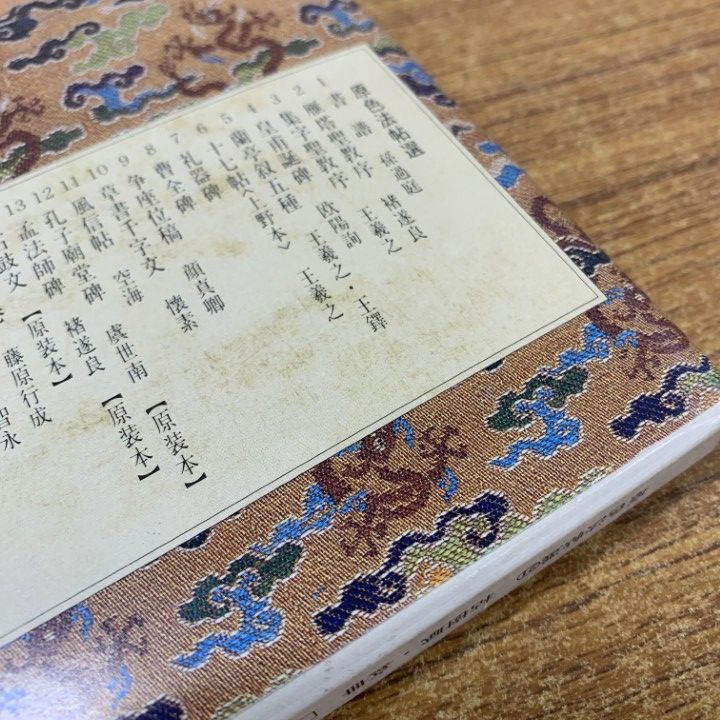 原色法帖選
1 書譜 孫過庭
2 雁塔聖教序 褚遂良
3 集字聖教序 王羲之
4 皇甫誕碑 欧陽詢
5 蘭亭叙五種 王羲之・王鐸
6 十七帖〈上野本〉 王羲之
7 礼器碑
8 曹全碑
9 争座位稿 顔真卿
10 草書千字文 懐素
11 風信帖 空海 【原装本】
12 孔子廟堂碑 虞世南 【原装本】
13 孟法師碑 褚遂良
鼓文 【原装本】
藤原行成
智永